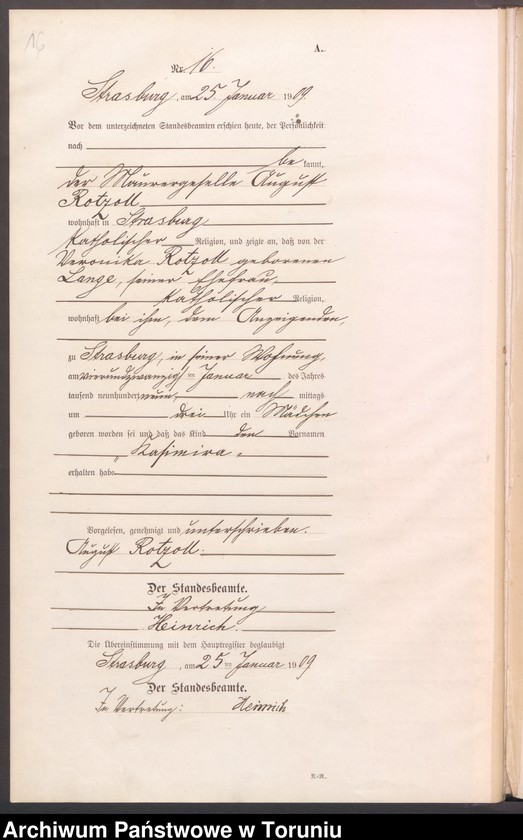 16
A.
Nr. 16.
Strasburg, am 25. Januar 1909.
Vor dem unterzeichneten Standesbeamten erschien heute, der Persönlichkeit
nach
be kannt,
der Maurergeselle August
Rotzoll
wohnhaft in Strasburg
katholischer Religion, und zeigte an, daß von der
Veronika Rotzoll geborenen
Lange, seiner Ehefrau,
katholischer Religion,
wohnhaft bei ihm, dem Anzeigenden,
zu Strasburg, in seiner Wohnung,
am vierundzwanzigsten Januar des Jahres
tausend neunhundert neun, nach mittags
um drei Uhr ein Mädchen
geboren worden sei und daß das Kind den Vornamen
„Kasimira"
erhalten habe.
Vorgelesen, genehmigt und unterschrieben.
August Rotzoll.
Der Standesbeamte.
In Vertretung
Heinrich.
Die Übereinstimmung mit dem Hauptregister beglaubigt
Strasburg, am 25ten Januar 1909
Der Standesbeamte.
In Vertretung: Heinrich
Archiwum Państwowe w Toruniu